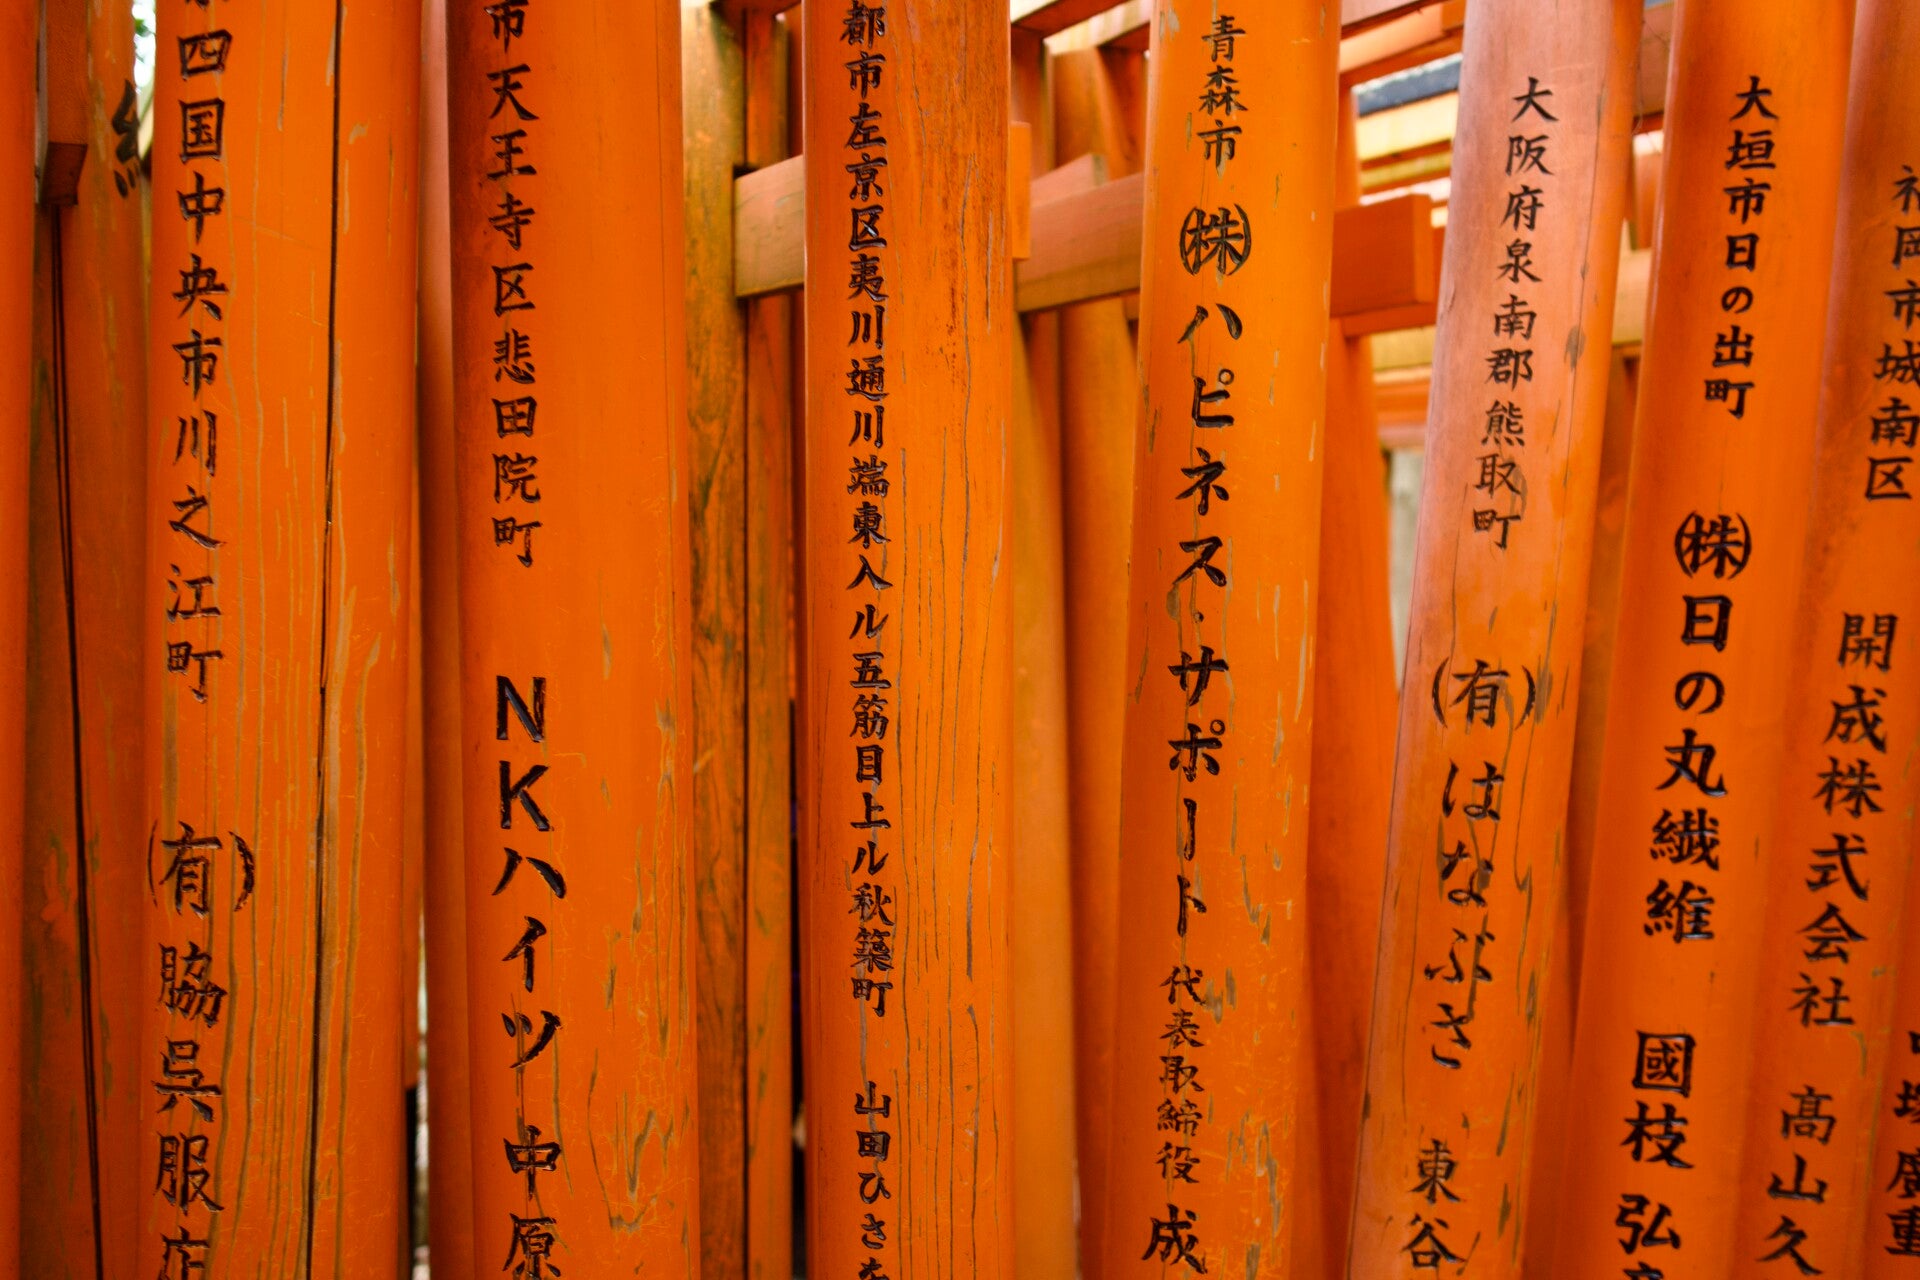 福岡市城南区 開成株式会社 高山久
大垣市日の出町 ㈱日の丸繊維 國枝 弘
大阪府泉南郡熊取町 (有)はなぶさ 東谷
青森市 ㈱ハピネス・サポート 代表取締役 成
都市左京区夷川通川端東入ル五筋目上ル秋築町 山田ひさ
市天王寺区悲田院町 NKハイツ中原
四国中央市川之江町 (有)脇呉服店